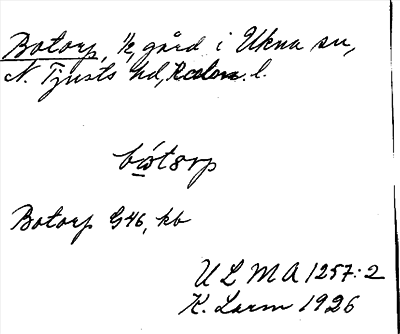 Botorp, 1/2 gård i Ukna sn,
N. Tjusts hd, Kalm. l.
Botorp G46, kb
ULMA 1257:2
K. Larm 1926